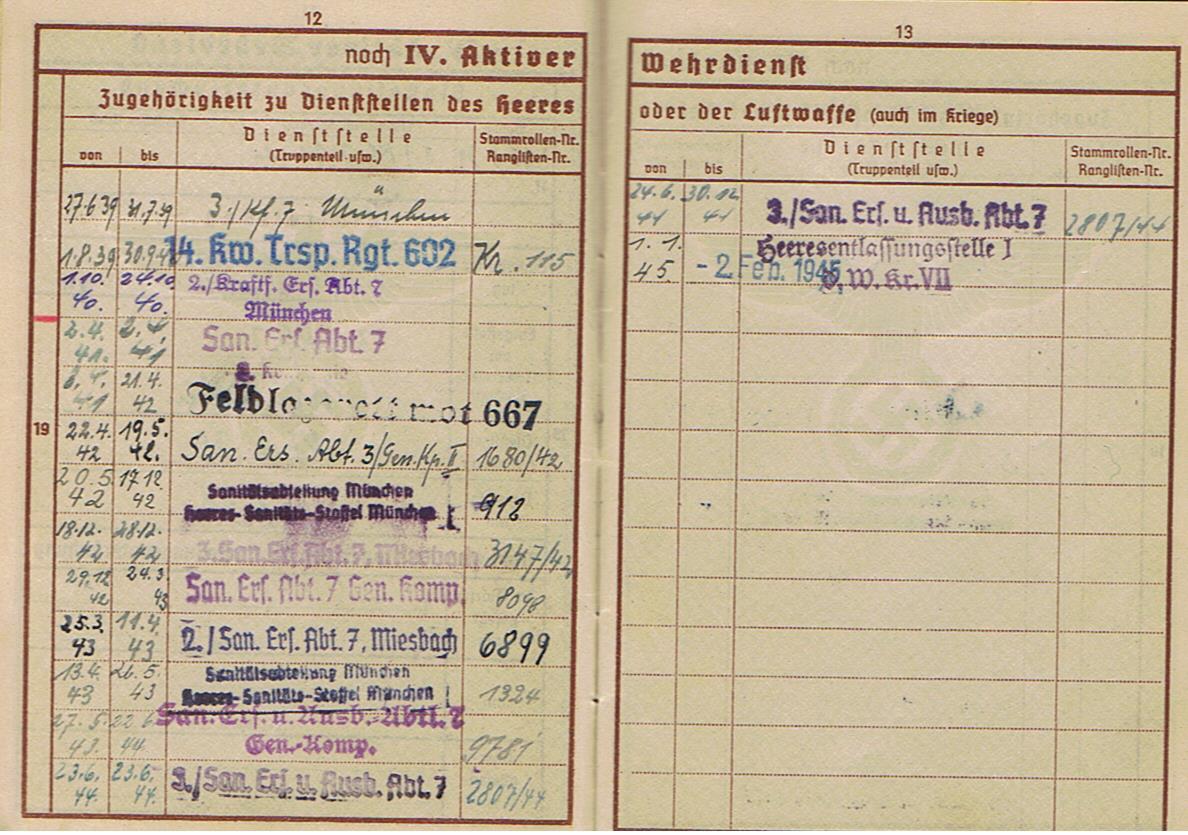 12
noch IV. Aktiver
Zugehörigkeit zu Dienststellen des Heeres
von bis Dienststelle (Truppenteil usw.) Stammrollen-Nr. Ranglisten-Nr.
27.6.39 31.7.39 3./Kf. 7 München
1.8.39 30.9. 14. Kw. Trsp. Rgt. 602 Kr. 115
1.10. 40. 24.10. 40. 2./Kraftf. Ers. Abt. 7
München
2.4. 41. 41 San. Ers. Abt. 7
41 21.4. 42 Feldlazarett mot 667
19
22.4. 42 19.5. 42. San. Ers. Abt. 3/Gen.Kp. II 1680/42
20.5. 42 17.12. 42 Sanitätsabteilung München
Heeres-Sanitäts-Staffel München 912
18.12. 42 28.12. 42 3. San. Ers. Abt. 7, Miesbach 3147/42
29.12. 42 24.3. 43 San. Ers. Abt. 7 Gen. Komp. 8098
25.3. 43 11.4. 43 2./San. Ers. Abt. 7, Miesbach 6899
13.4. 43 26.5. 43 Sanitätsabteilung München
Heeres-Sanitäts-Staffel München 1324
27.5. 43. 22.6. 44. San.-Ers. u. Ausb.-Abtl. 7
Gen.-Komp. 9781
23.6. 44. 23.6. 44. 3./San. Ers. u. Ausb. Abt. 7 2807/44
13
Wehrdienst
oder der Luftwaffe (auch im Kriege)
von bis Dienststelle (Truppenteil usw.) Stammrollen-Nr. Ranglisten-Nr.
24.6. 44 30.12. 44 3./San. Ers. u. Ausb. Abt. 7 2807/44
1.1. 45. - 2 Feb. 1945 Heeresentlassungsstelle I
W. Kr. VII